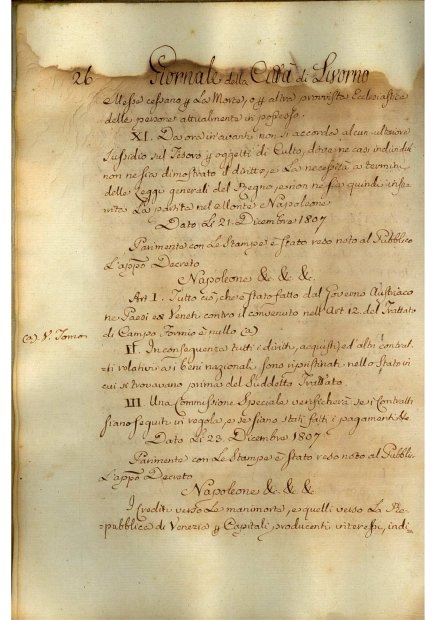 26 Giornale della Città di Livorno
Messe cessano p la Morte, o p altra provvista Ecclesiastica
delle persone attualmente in possesso.
XI. Da ora in avanti non si accorda alcun ulteriore
sussidio sul Tesoro p oggetti di Culto, dove ne casi individui
non ne sia dimostrato il dritto, e la necessità a termini
delle Leggi generali del Regno, e non ne sia quindi inse-
rita la partita nel Monte Napoleone
Dato Li 21. Dicembre 1807
Parimente con Le Stampe è stato reso noto al Pubblico
L'appo Decreto
Napoleone &c. &c. &c.
Art I. Tutto ciò, che è stato fatto dal Governo Austriaco
ne Paesi ex Veneti contro il convenuto nell'Art 12. del Trattato
(a) V. Tomo
di Campo Formio è nullo (a)
II. In conseguenza tutti i diritti, acquisti, ed altri contrat-
ti relativi a i beni nazionali, sono ripristinati nello Stato in
cui si trovavano prima del Suddetto Trattato.
III Una Commissione Speciale verificherà se i Contratti
siano seguiti in regola, e se siano stati fatti i pagamenti &c
Dato Li 23. Dicembre 1807.
Parimente con Le Stampe è stato reso noto al Pubblic.
L'appo Decreto
Napoleone &c. &c. &c.
I crediti verso Le manimorte, e quelli verso La Re-
pubblica di Venezia p Capitali producenti interessi, indi